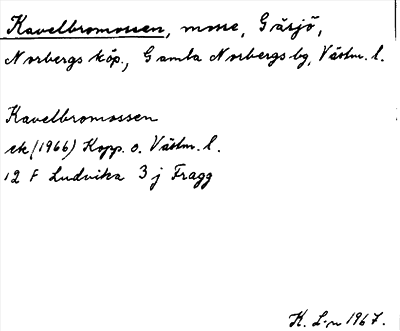 Kavelbromossen, mosse, Gäsjö,
Norbergs köp., Gamla Norbergs bg, Västm. l.
Kavelbromossen
ek (1966) Kopp. o. Västm. l.
12 F Ludvika 3 j Fragg
K. L-n 1967.